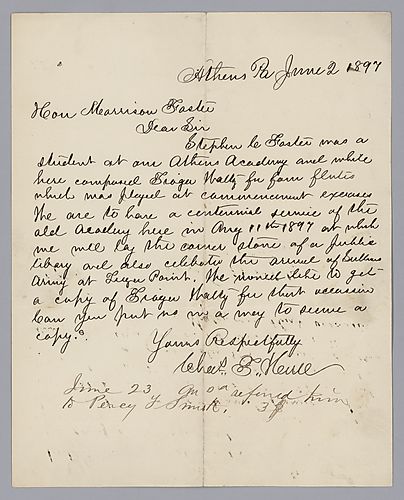 Athens Pa June 2 1897
Hon Morrison Foster
Dear Sir
Stephen C Foster was a
student at our Athens Academy and while
here composed Tioga Waltz for four flutes
which was played at commencement excuses
We are to have a centennial service of the
old Academy here in Aug 11th 1897 at which
we will lay the corner stone of a public
libary and also celebrate the arrival of Sullivans
Army at Tioga Point. We would like to get
a copy of Tioga Waltz for that occasion
Can you put us in a way to secure a
copy?
Yours Respectfully
Chas. F.
June 23 refered him
to Percy F Smith.